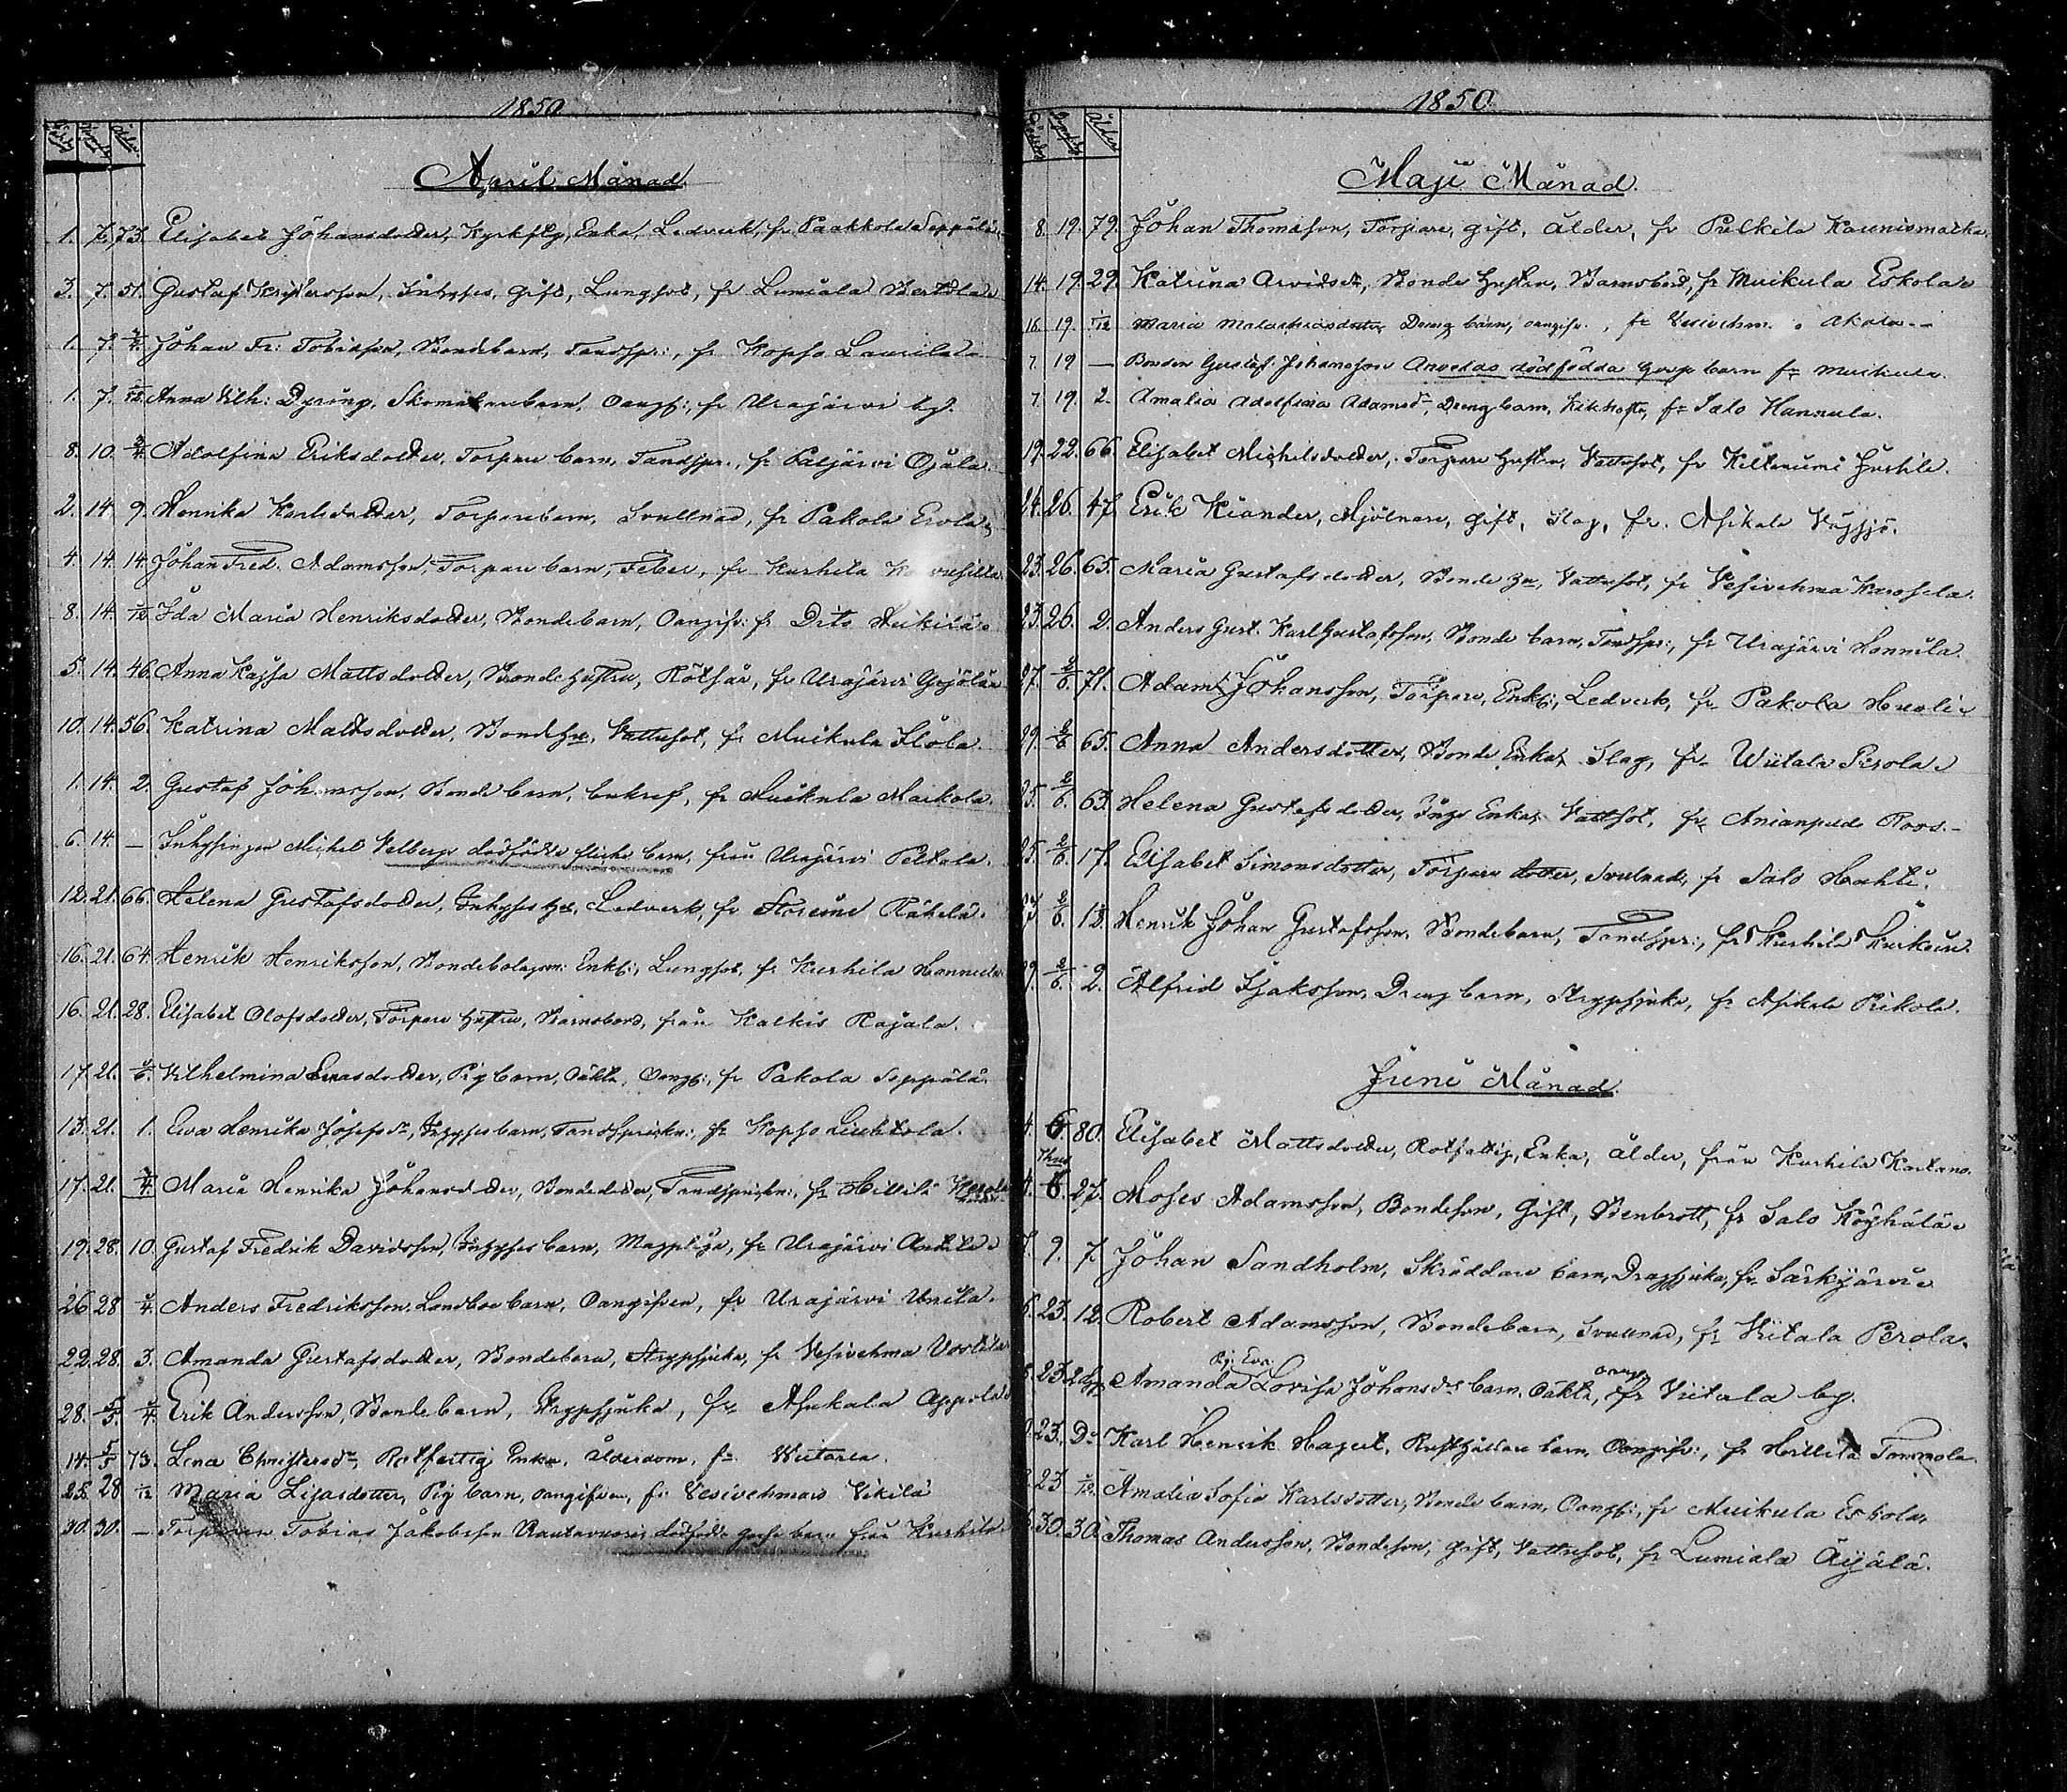 1850
April Månad.
1. 7. 73. Elisabet Johansdotter, Kyrkftg, Enka, Ledverk, fr Paakkola Seppälä
3. 7. 51. Gustaf Inhyses, gift, Lungsot, fr Lumiala
1. 7. Johan Fr: Tobiasson, Bondebarn, Tandspr:, fr Kopso Laurila
1. 7. Anna Vilh: Dyring, Skomakarebarn, Oangf:, fr Urajärvi by.
8. 10. Adolfina Eriksdotter, Torpare barn, Tandspr., fr Paljärvi Ojala
2. 14. 9. Henrika Karlsdotter, Torparebarn, Svullnad, fr Pakola Erola
4. 14. 14 Johan Fred. Adamsson, Torpare barn, Feber, fr Kurhila
8. 14. Ida Maria Henriksdotter, Bondebarn, Oangifv: fr Dito Heikilä
5. 14. 46. Anna Kajsa Mattsdotter, Bonde hustru, Rötsår, fr Urajärvi
10. 14. 56. Katrina Mattsdotter, Bonde Hu, Vattusot, fr Muikula
1. 14. 2. Gustaf Johansson, Bonde barn, fr Muikula Markola.
6. 14. — Inhysingen Michel Velbergs dödfödde flicke barn, från Urajärvi Peltola.
12. 21. 66. Helena Gustafsdotter, Inhyses Hu, Ledverk, fr
16. 21. 64 Henrik Henriksson, Bondebolagsm: Enkl:, Lungsot, fr Kurhila Hannula
16. 21. 28. Elisabet Olofsdotter, Torpare hustru, Barnsbörd, från Kalkis Rajala.
17. 21. Vilhelmina dotter, Pig barn, Oäkta, Oangf:, fr Pakola Seppälä.
13. 21. 1. Eva Henrika Josefsdr, Inhyses barn, Tandsprickn:, fr Kopso
17. 21. Maria Henrika Johansdotter, Bondedotter, Tandsprickn:, fr Hillilä
19. 28. 10. Gustaf Fredrik Davidsson, Inhyses barn, Magplåga, fr Urajärvi Anttila
26. 28 Anders Fredriksson, Landboe barn, Oangifven, fr Urajärvi
22. 28. 3. Amanda Gustafsdotter, Bondebarn, Strypsjuka, fr Vesivehma
28. 5/5. Erik Andersson, Bondebarn, Strypsjuka, fr Asikala
14. 5/5 73. Lena Christersdr, Rotfattig Enka, ålderdom, fr
25. 28 Maria Lisasdotter, Pig barn, oangifven, fr Vesivehmas Vikilä
30. 30. — Torparen Tobias Jakobsson Rautavuoris dödfödde gosse barn från Kurhila
1850
Maji Månad.
8. 19. 79. Johan Thomasson, Torpare, gift, ålder, fr Pulkila Kaunismäki.
14. 19. 29. Katrina Arvidsdr, Bonde hustru, Barnsbörd, fr Muikula Eskola
16. 19. Maria Malachiasdotter Dräng barn, oangifv., fr Vesivehm.
7. 19 — Bonden Gustaf Johansson dödfödda gosse barn fr Muikula.
7. 19. 2. Amalia Adolfina Adamsdr, Drengbarn, Kikhosta, fr Salo Hannula.
19. 22. 66. Elisabet Michelsdotter, Torpare hustru, Vattusot, fr
24. 26. 47. Erik Kiander, Mjölnare, gift, Slag, fr. Asikala
23. 26. 65. Maria Gustafsdotter, Bonde Hu, Vattusot, fr Vesivehma
23. 26. 2. Anders Gust. Karl Gustafsson, Bonde barn, Tandspr:, fr Urajärvi
27. 2/6. 71. Adam Johansson, Torpare, Enkl:, Ledverk, fr Pakola
29. 2/6 65. Anna Andersdotter, Bonde Enka, Slag, fr Viitala Perola
25. 2/6. 63. Helena Gustafsdotter, Enka, Vattsot, fr Anianpelto Roos.
25. 2/6. 17. Elisabet Simonsdotter, Torpare dotter, Svulnad, fr Salo
27 2/6. Henrik Johan Gustafsson, Bondebarn, Tandspr:, fr Kurhila
29. 2/6. 2. Alfrid Isaksson, Dreng barn, Strypsjuka, fr Asikala
Juni Månad.
4. 6. 80. Elisabet Mattsdotter, Rotfattig, Enka, ålder, från Kurhila Kartano.
4. 6. 27. Moses Adamsson, Bondeson, Gift, Benbrott, fr Salo
9. 7 Johan Sandholm, Skräddare barn, Dragsjuka, fr Särkijärvi
23. 12. Robert Adamsson, Bondebarn, Svullnad, fr Viitala Perola.
23. Pig: Eva Amanda Lovisa Johansdrs barn, Oäkta, oangf fr Viitala by.
23. Do Karl Henrik Hagert, Rusthållare barn, Oangifv:, fr Hillilä Tommola
23 Amalia Sofia Karlsdotter, Bonde barn, Oangf:, fr Muikula Eskola,
30. 30. Thomas Andersson, Bondeson, gift, Vattusot, fr Lumiala Äijälä.